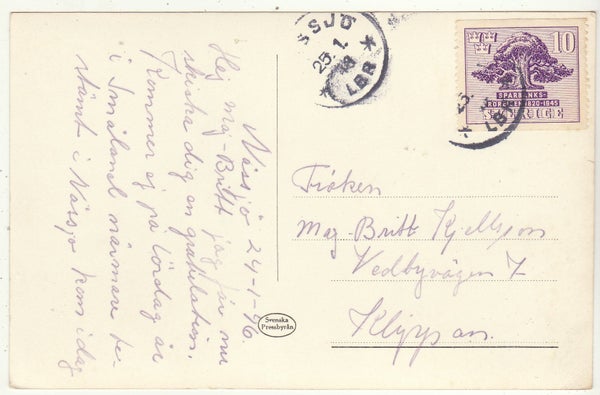 Nässjö 24-1-46.
Hej maj-Britt jag får nu
skicka dig en gratulation.
Kommer ej på Lördag är
i Småland närmare be-
stämt i Nässjö kom i dag
SSJÖ
25.1.
LBR
10
SPARBANKS-
RÖRELSEN 1820-1945
SVERIGE
25.
LBR
Fröken
Maj-Britt Kjellsson
Vedbyvägen 7
Klippan.
Svenska
Pressbyrån